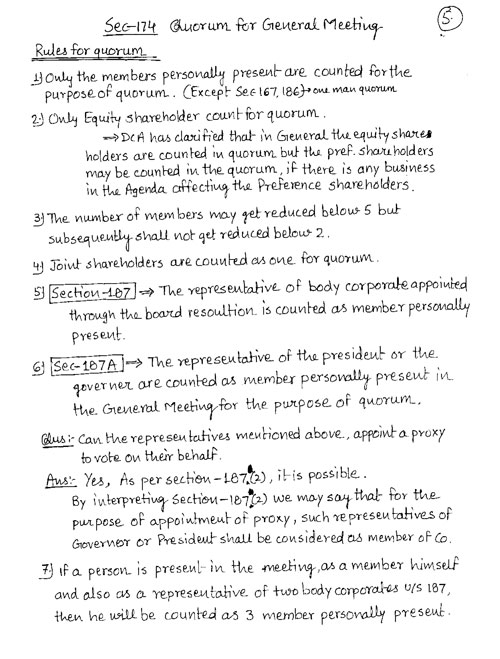 Sec-174 Quorum for General Meeting
5.
Rules for quorum.
1) Only the members personally present are counted for the
purpose of quorum. (Except Sec 167, 186) → one man quorum
2) Only Equity shareholder count for quorum.
→ DCA has clarified that in General the equity shares
holders are counted in quorum but the pref. shareholders
may be counted in the quorum, if there is any business
in the Agenda affecting the Preference shareholders.
3) The number of members may get reduced below 5 but
subsequently shall not get reduced below 2.
4) Joint shareholders are counted as one for quorum.
5) Section-187 → The representative of body corporate appointed
through the board resoultion is counted as member personally
present.
6) Sec-187A → The representative of the president or the
governer are counted as member personally present in
the General Meeting for the purpose of quorum.
Qus:- Can the representatives mentioned above, appoint a proxy
to vote on their behalf.
Ans:- Yes, As per section-187 (2), it is possible.
By interpreting Section-187 (2) we may say that for the
purpose of appointment of proxy, such representatives of
Governor or President shall be considered as member of Co.
7) If a person is present in the meeting, as a member himself
and also as a representative of two body corporates u/s 187,
then he will be counted as 3 member personally present.